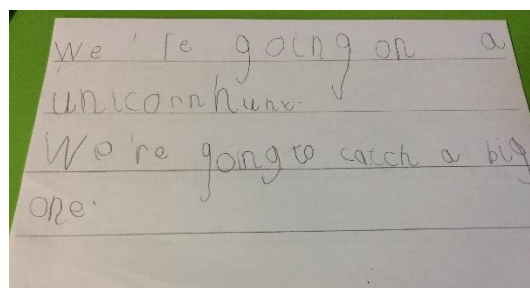 We're going on a
unicornhunt.
We're going to catch a big
one.